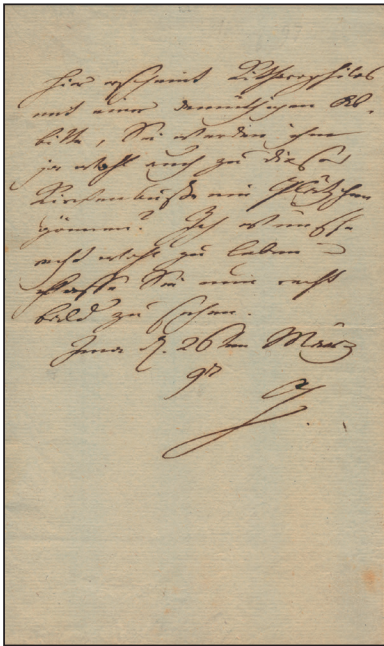 Hier erscheint Litterophilos
mit einer demüthigen Ab-
bitte, Sie werden ihm
ja wohl auch zu dieser
Kirchenbuße ein Plätzchen
gönnen? Ich wünsche
recht wohl zu leben u
hoffe Sie nun recht
bald zu sehen.
Jena d. 26ten März
97